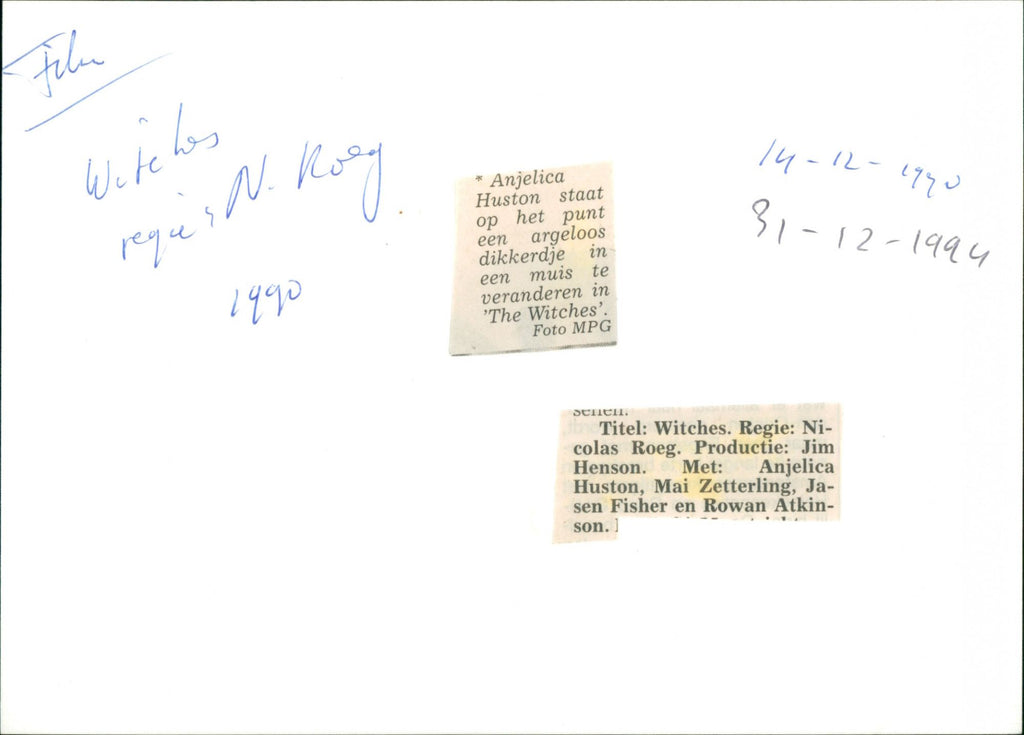 Film
Witches
regie: N. Roeg
1990
14-12-1990
31-12-1994
* Anjelica
Huston staat
op het punt
een argeloos
dikkerdje in
een muis te
veranderen in
'The Witches'.
Foto MPG
Titel: Witches. Regie: Ni-
colas Roeg. Productie: Jim
Henson. Met: Anjelica
Huston, Mai Zetterling, Ja-
sen Fisher en Rowan Atkin-
son.